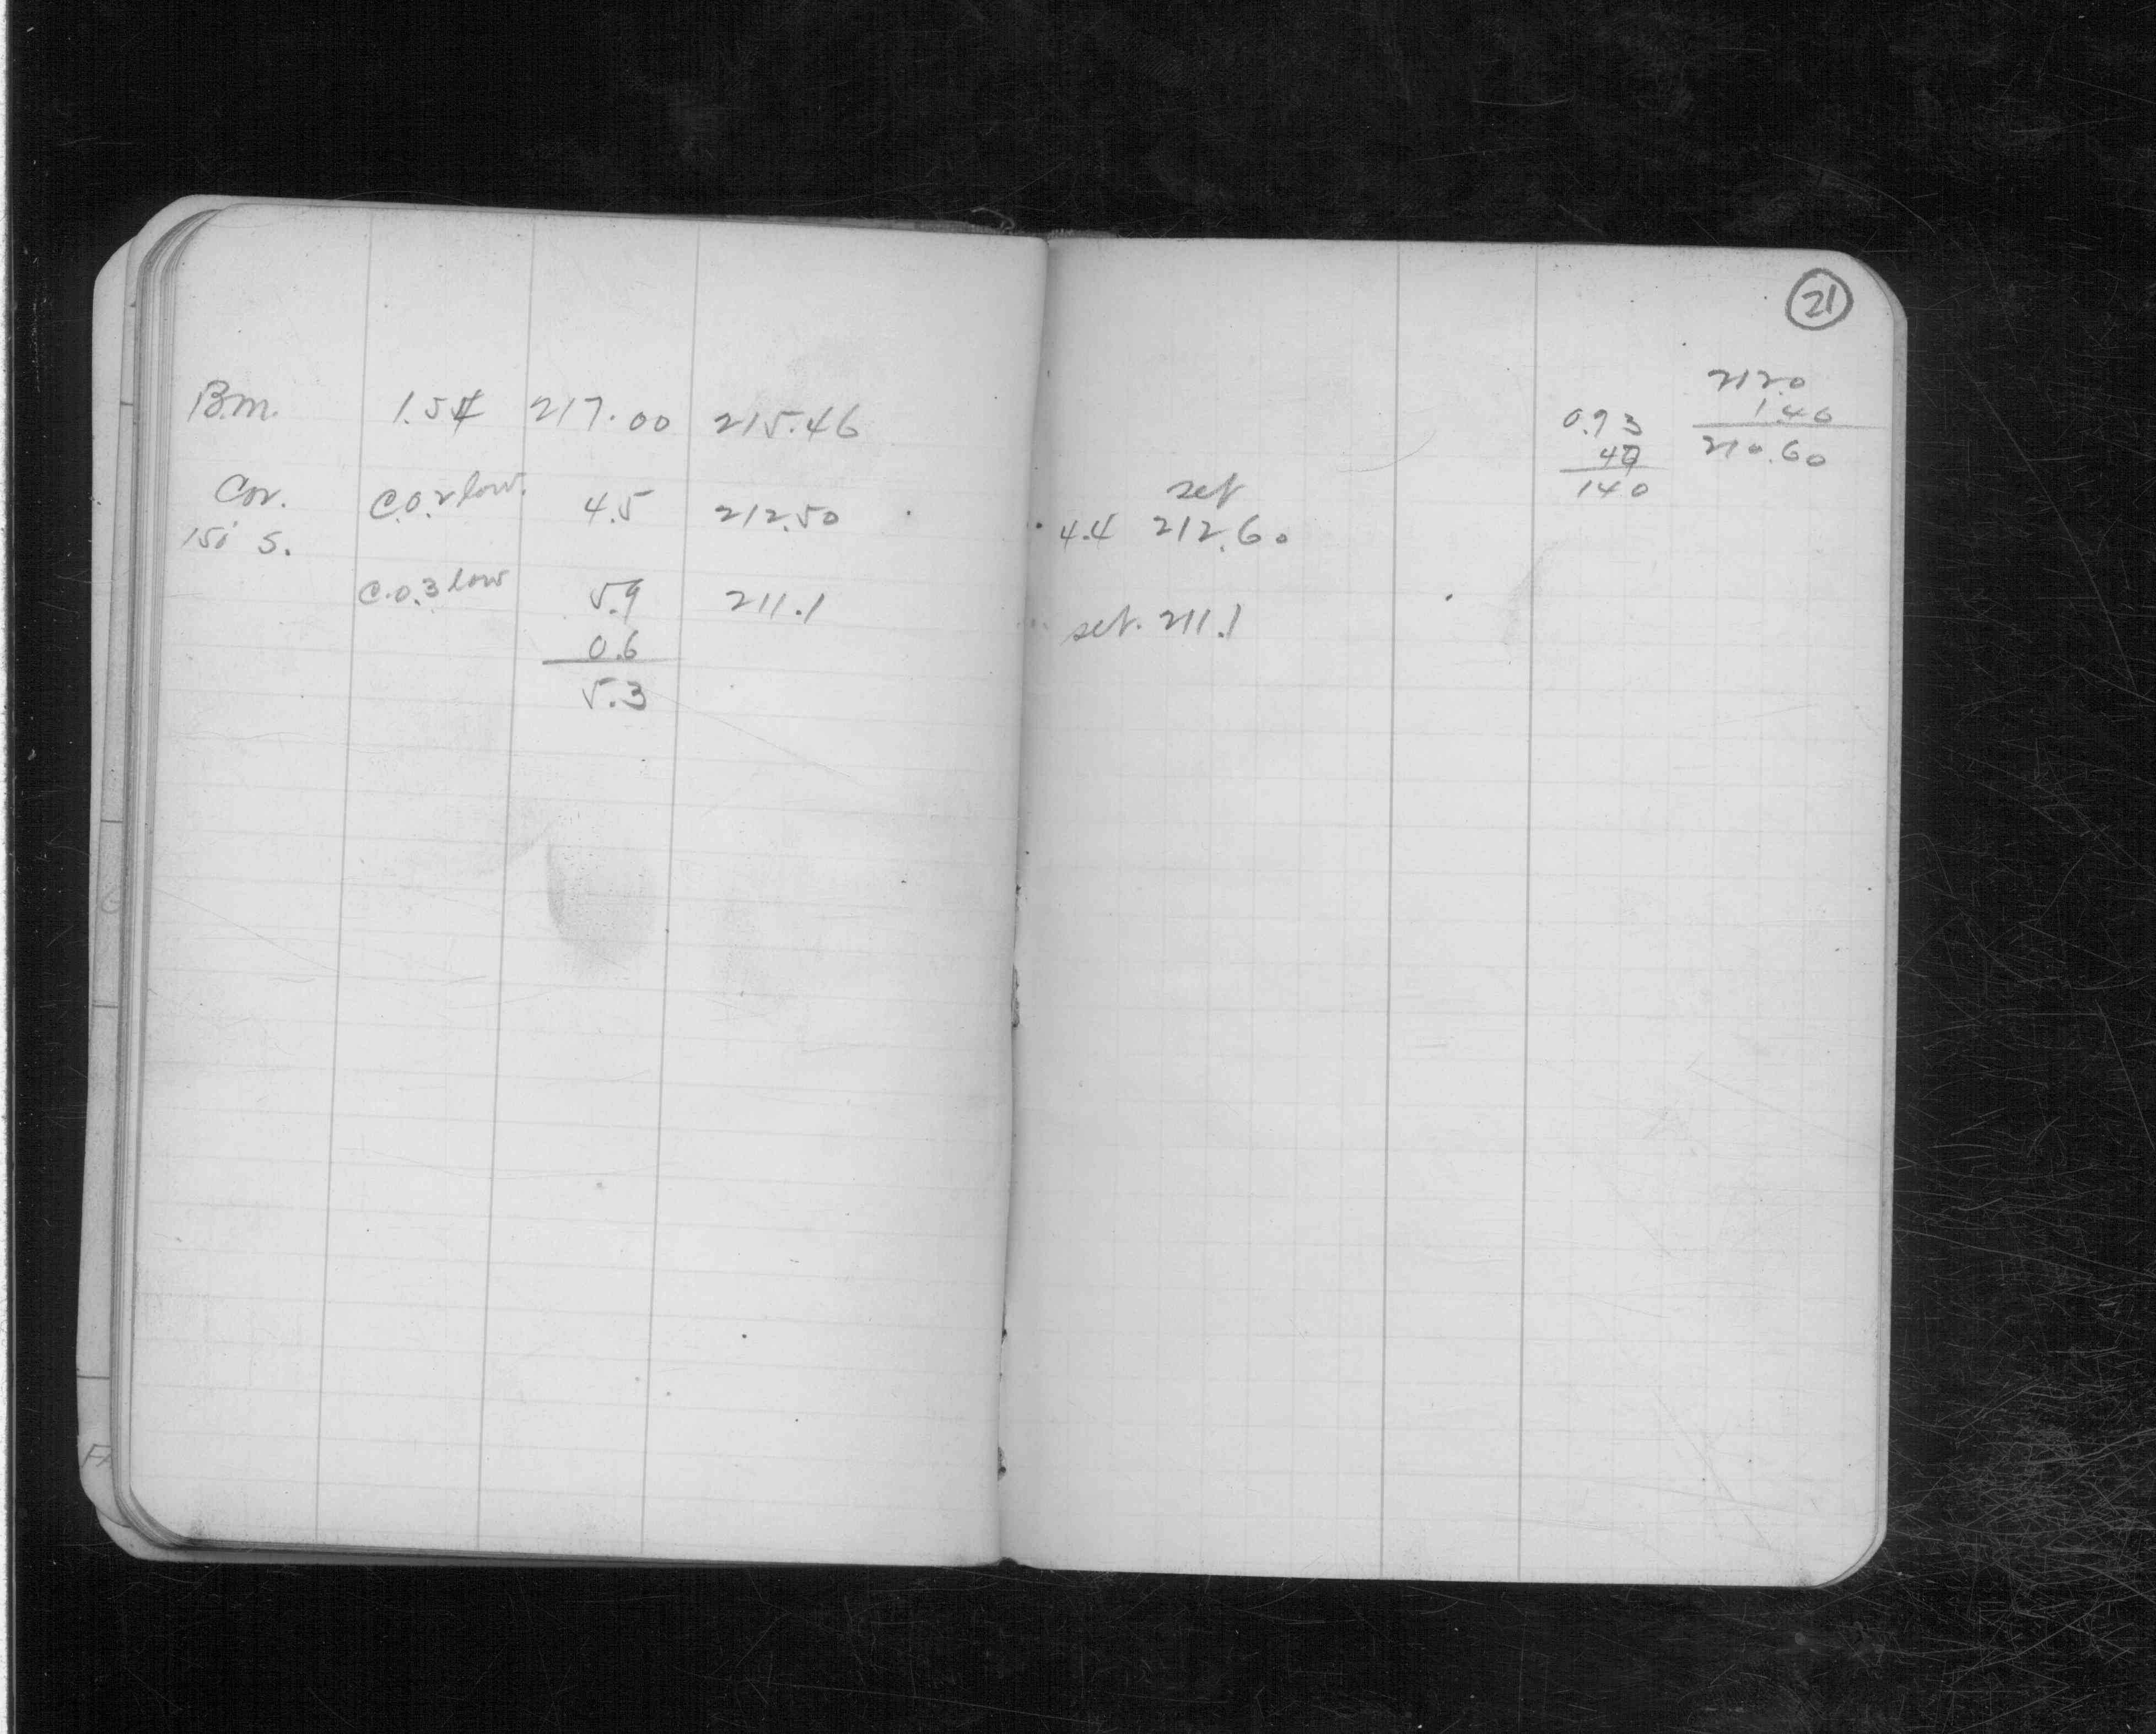 B.M. 1.54 217.00 215.46
Cor. C.O.2 low. 4.5 212.50
150' S.
C.O.3 low 5.9 211.1
0.6
5.3
21
2120
1.40
210.60
0.93
47
140
set
4.4 212.60
set. 211.1